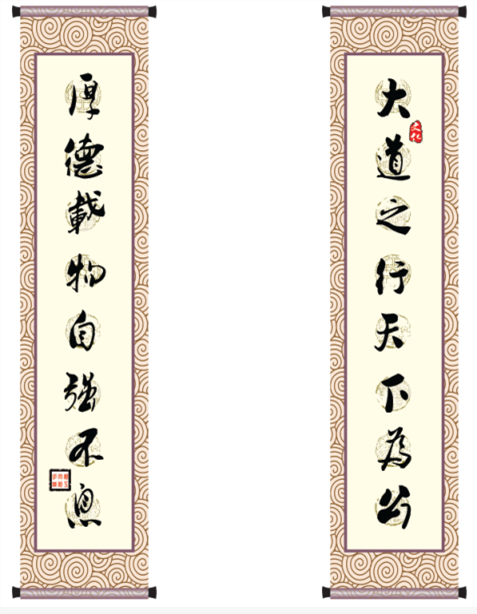 大道之行天下為公
文化
厚德載物自強不息